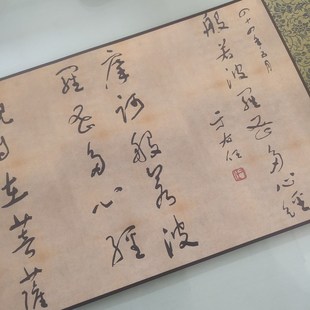 四十四年五月
般若波羅蜜多心經
于右任
摩訶般若波
羅蜜多心經
自在菩薩